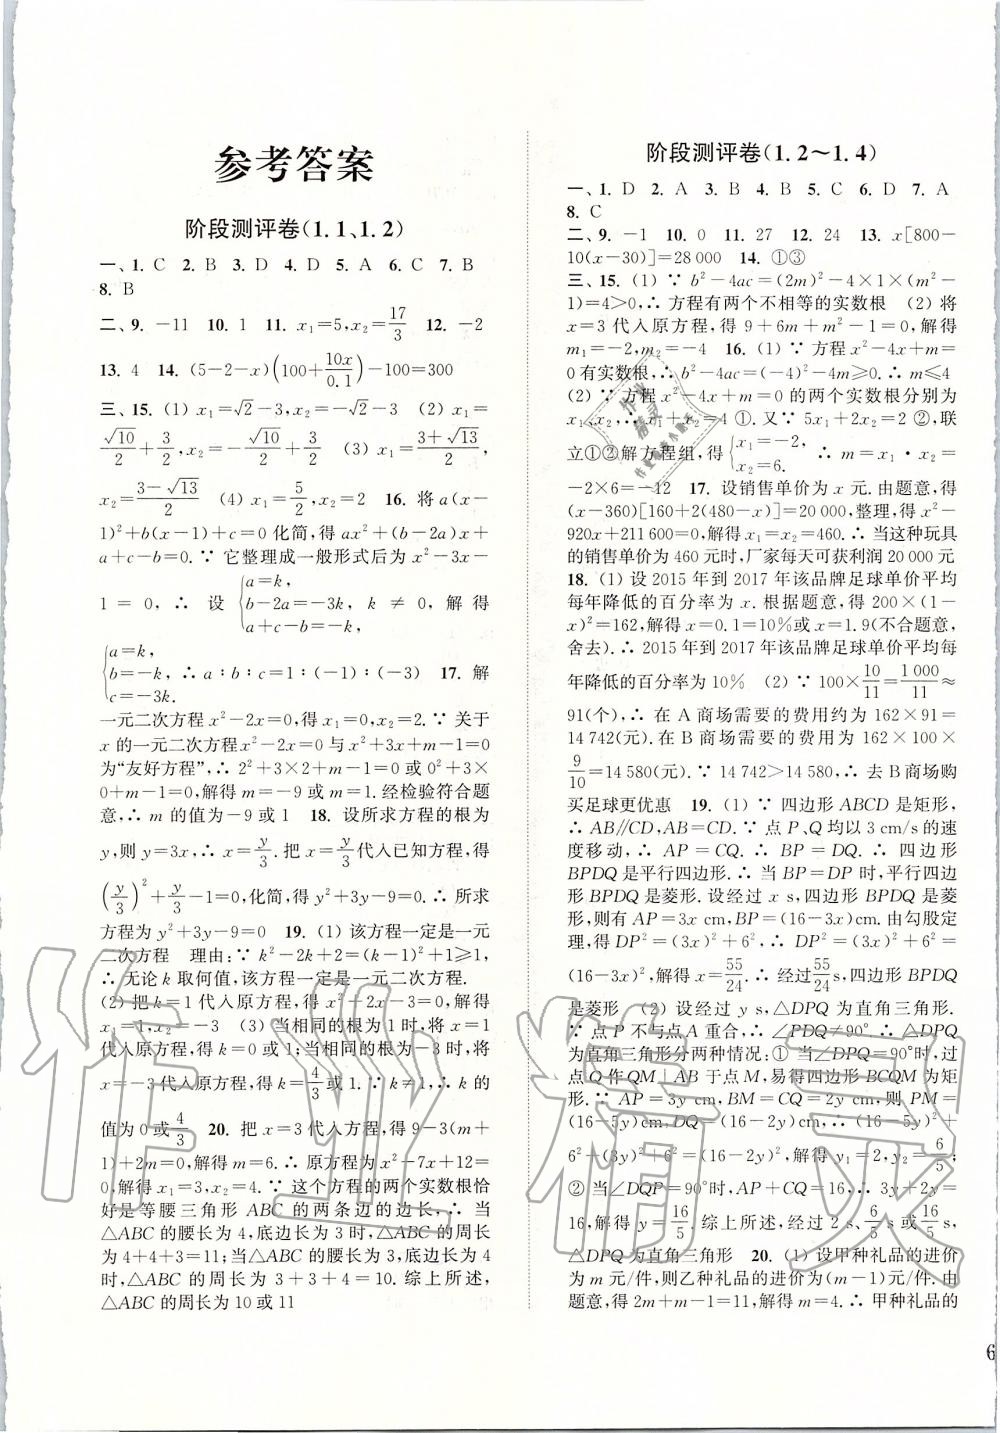 参考答案
阶段测评卷(1.1、1.2)
一、1. C 2. B 3. D 4. D 5. A 6. C 7. B
8. B
二、9. －11 10. 1 11. x₁=5,x₂=17/3 12. －2
13. 4 14. (5－2－x)(100+10x/0.1)－100=300
三、15. (1) x₁=√2－3,x₂=－√2－3 (2) x₁=
√10/2+3/2,x₂=－√10/2+3/2 (3) x₁=(3+√13)/2,
x₂=(3－√13)/2 (4) x₁=5/2,x₂=2 16. 将 a(x－
1)²+b(x－1)+c=0 化简,得 ax²+(b－2a)x+
a+c－b=0. ∵ 它整理成一般形式后为 x²－3x－
1=0,∴ 设{a=k, b－2a=－3k, a+c－b=－k, k≠0,解得
{a=k, b=－k, c=－3k. ∴ a∶b∶c=1∶(－1)∶(－3) 17. 解
一元二次方程 x²－2x=0,得 x₁=0,x₂=2. ∵ 关于
x 的一元二次方程 x²－2x=0 与 x²+3x+m－1=0
为“友好方程”,∴ 2²+3×2+m－1=0 或 0²+3×
0+m－1=0,解得 m=－9 或 m=1. 经检验符合题
意,∴ m 的值为－9 或 1 18. 设所求方程的根为
y,则 y=3x,∴ x=y/3. 把 x=y/3代入已知方程,得
(y/3)²+y/3－1=0,化简,得 y²+3y－9=0. ∴ 所求
方程为 y²+3y－9=0 19. (1) 该方程一定是一元
二次方程 理由:∵ k²－2k+2=(k－1)²+1≥1,
∴ 无论 k 取何值,该方程一定是一元二次方程.
(2) 把 k=1 代入原方程,得 x²+2x－3=0,解得
x₁=1,x₂=－3 (3) 当相同的根为 1 时,将 x=1
代入原方程,得 k=0 或 1;当相同的根为－3 时,将
x=－3 代入原方程,得 k=4/3或 1. ∵ k≠1,∴ k 的
值为 0 或4/3 20. 把 x=3 代入方程,得 9－3(m+
1)+2m=0,解得 m=6. ∴ 原方程为 x²－7x+12=0,
解得 x₁=3,x₂=4. ∵ 这个方程的两个实数根恰
好是等腰三角形 ABC 的两条边的边长,∴ 当
△ABC 的腰长为 4,底边长为 3 时,△ABC 的周长
为 4+4+3=11;当△ABC 的腰长为 3,底边长为 4
时,△ABC 的周长为 3+3+4=10. 综上所述,
△ABC 的周长为 10 或 11
阶段测评卷(1.2～1.4)
一、1. D 2. A 3. B 4. B 5. C 6. D 7. A
8. C
二、9. －1 10. 0 11. 27 12. 24 13. x[800－
10(x－30)]=28 000 14. ①③
三、15. (1) ∵ b²－4ac=(2m)²－4×1×(m²－
1)=4>0,∴ 方程有两个不相等的实数根 (2) 将
x=3 代入原方程,得 9+6m+m²－1=0,解得
m₁=－2,m₂=－4 16. (1) ∵ 方程 x²－4x+m=
0 有实数根,∴ b²－4ac=(－4)²－4m≥0. ∴ m≤4
(2) ∵ 方程 x²－4x+m=0 的两个实数根分别为
x₁、x₂,∴ x₁+x₂=4 ①. 又∵ 5x₁+2x₂=2 ②,联
立①②解方程组,得{x₁=－2, x₂=6. ∴ m=x₁·x₂=
－2×6=－12 17. 设销售单价为 x 元. 由题意,得
(x－360)[160+2(480－x)]=20 000,整理,得 x²－
920x+211 600=0,解得 x₁=x₂=460. ∴ 当这种玩具
的销售单价为 460 元时,厂家每天可获利润 20 000 元
18. (1) 设 2015 年到 2017 年该品牌足球单价平均
每年降低的百分率为 x. 根据题意,得 200×(1－
x)²=162,解得 x=0.1=10%或 x=1.9(不合题意,
舍去). ∴ 2015 年到 2017 年该品牌足球单价平均每
年降低的百分率为 10% (2) ∵ 100×10/11=1 000/11≈
91(个),∴ 在 A 商场需要的费用约为 162×91=
14 742(元). 在 B 商场需要的费用为 162×100×
9/10=14 580(元). ∵ 14 742>14 580,∴ 去 B 商场购
买足球更优惠 19. (1) ∵ 四边形 ABCD 是矩形,
∴ AB//CD,AB=CD. ∵ 点 P、Q 均以 3 cm/s 的速
度移动,∴ AP=CQ. ∴ BP=DQ. ∴ 四边形
BPDQ 是平行四边形. ∴ 当 BP=DP 时,平行四边
形 BPDQ 为菱形. 设经过 x s,四边形 BPDQ 为菱
形,则有 AP=3x cm,BP=(16－3x)cm. 由勾股定
理,得 DP²=(3x)²+6²,∴ (3x)²+6²=
(16－3x)²,解得 x=55/24. ∴ 经过55/24s,四边形 BPDQ
是菱形 (2) 设经过 y s,△DPQ 为直角三角形.
∵ 点 P 不与点 A 重合,∴ ∠PDQ≠90°. ∴ △DPQ
为直角三角形分两种情况:① 当∠DPQ=90°时,过
点 Q 作 QM⊥AB 于点 M,易得四边形 BCQM 为矩
形. ∵ AP=3y cm,BM=CQ=2y cm,则 PM=
(16－5y)cm,DQ=(16－2y)cm. ∴ (16－5y)²+
6²+(3y)²+6²=(16－2y)²,解得 y₁=2,y₂=6/5;
② 当∠DQP=90°时,AP+CQ=16,∴ 3y+2y=
16,解得 y=16/5. 综上所述,经过 2 s、6/5s 或16/5s,
△DPQ 为直角三角形 20. (1) 设甲种礼品的进价
为 m 元/件,则乙种礼品的进价为(m－1)元/件. 由
题意,得 2m+m－1=11,解得 m=4. ∴ 甲种礼品的
6
作业精灵